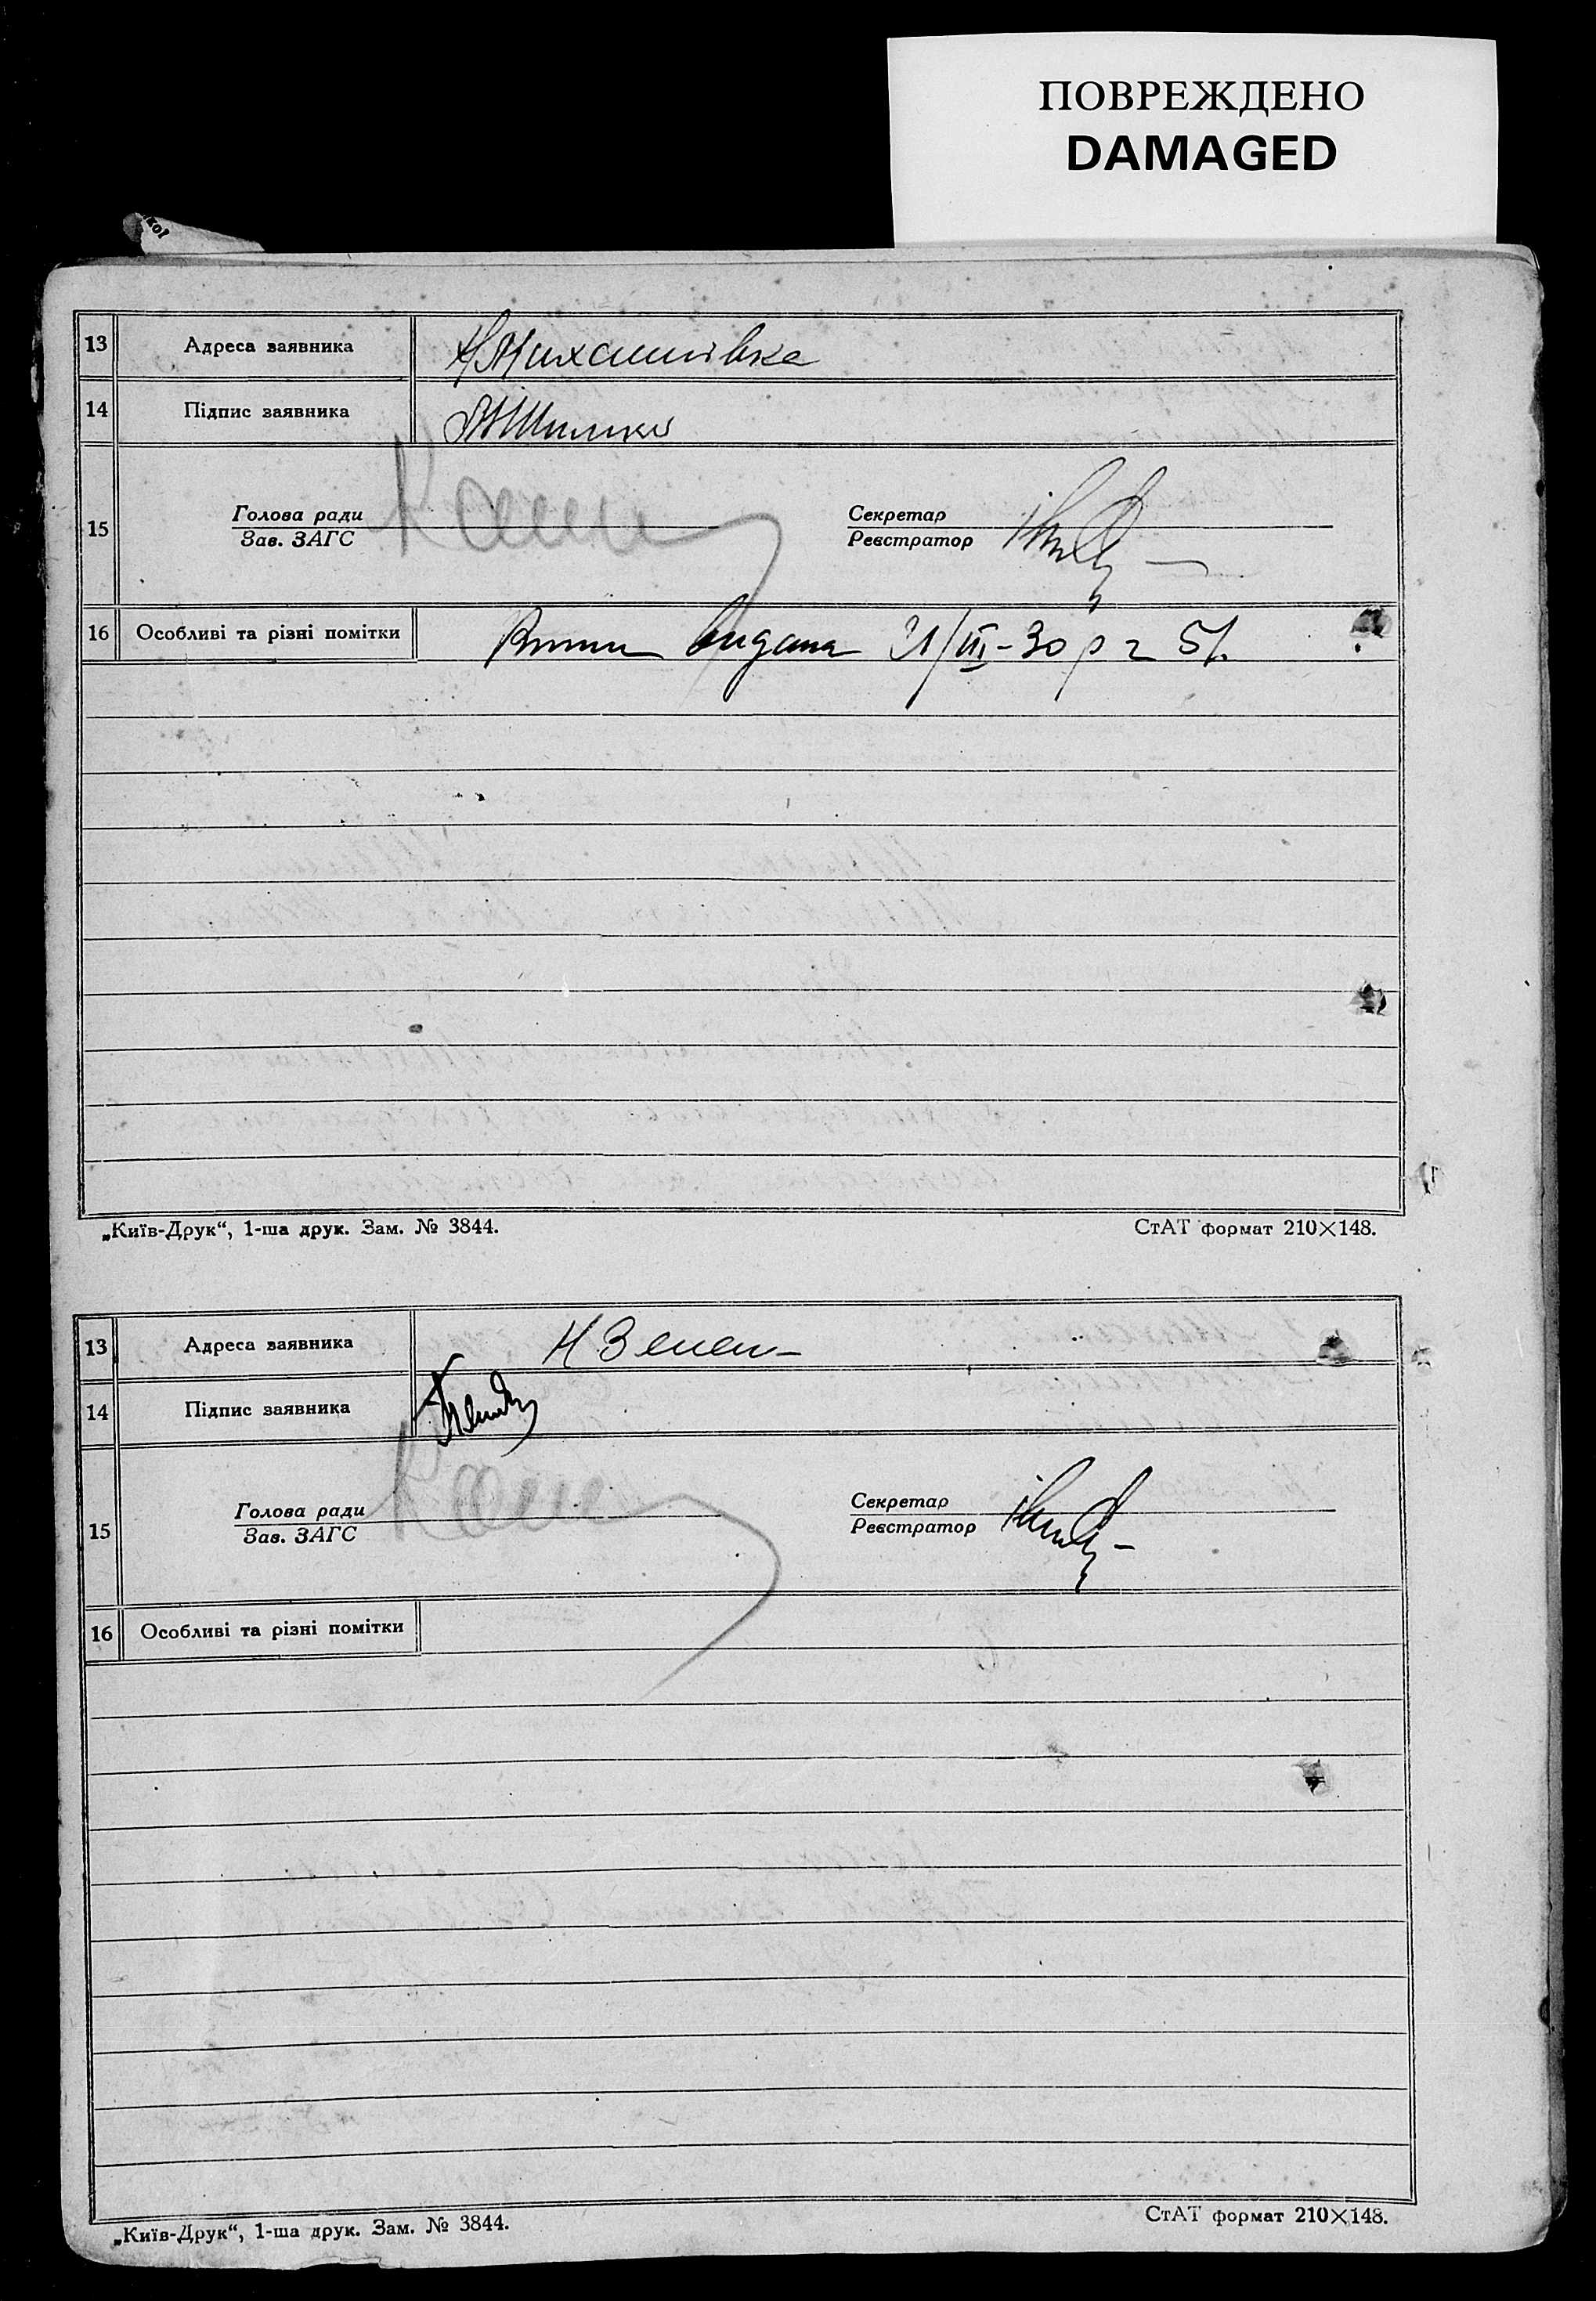 ПОВРЕЖДЕНО
DAMAGED
13 Адреса заявника Н Михайлівка
14 Підпис заявника
15 Голова ради
Зав. ЗАГС
Секретар
Реєстратор
16 Особливі та різні помітки видана 21/III-30 р 51.
„Київ-Друк“, 1-ша друк. Зам. № 3844.
СтАТ формат 210×148.
13 Адреса заявника Н Зелен-
14 Підпис заявника
15 Голова ради
Зав. ЗАГС
Секретар
Реєстратор
16 Особливі та різні помітки
„Київ-Друк“, 1-ша друк. Зам. № 3844.
СтАТ формат 210×148.